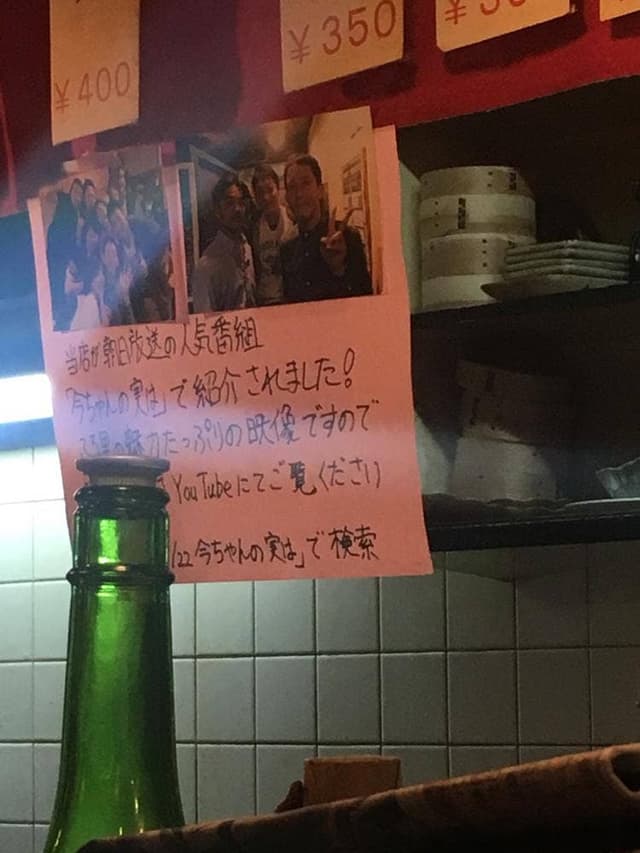 ¥400
¥350
当店が朝日放送の人気番組
「今ちゃんの実は」で紹介されました!
の魅力たっぷりの映像ですので
YouTubeにてご覧ください
/22 今ちゃんの実は」で検索